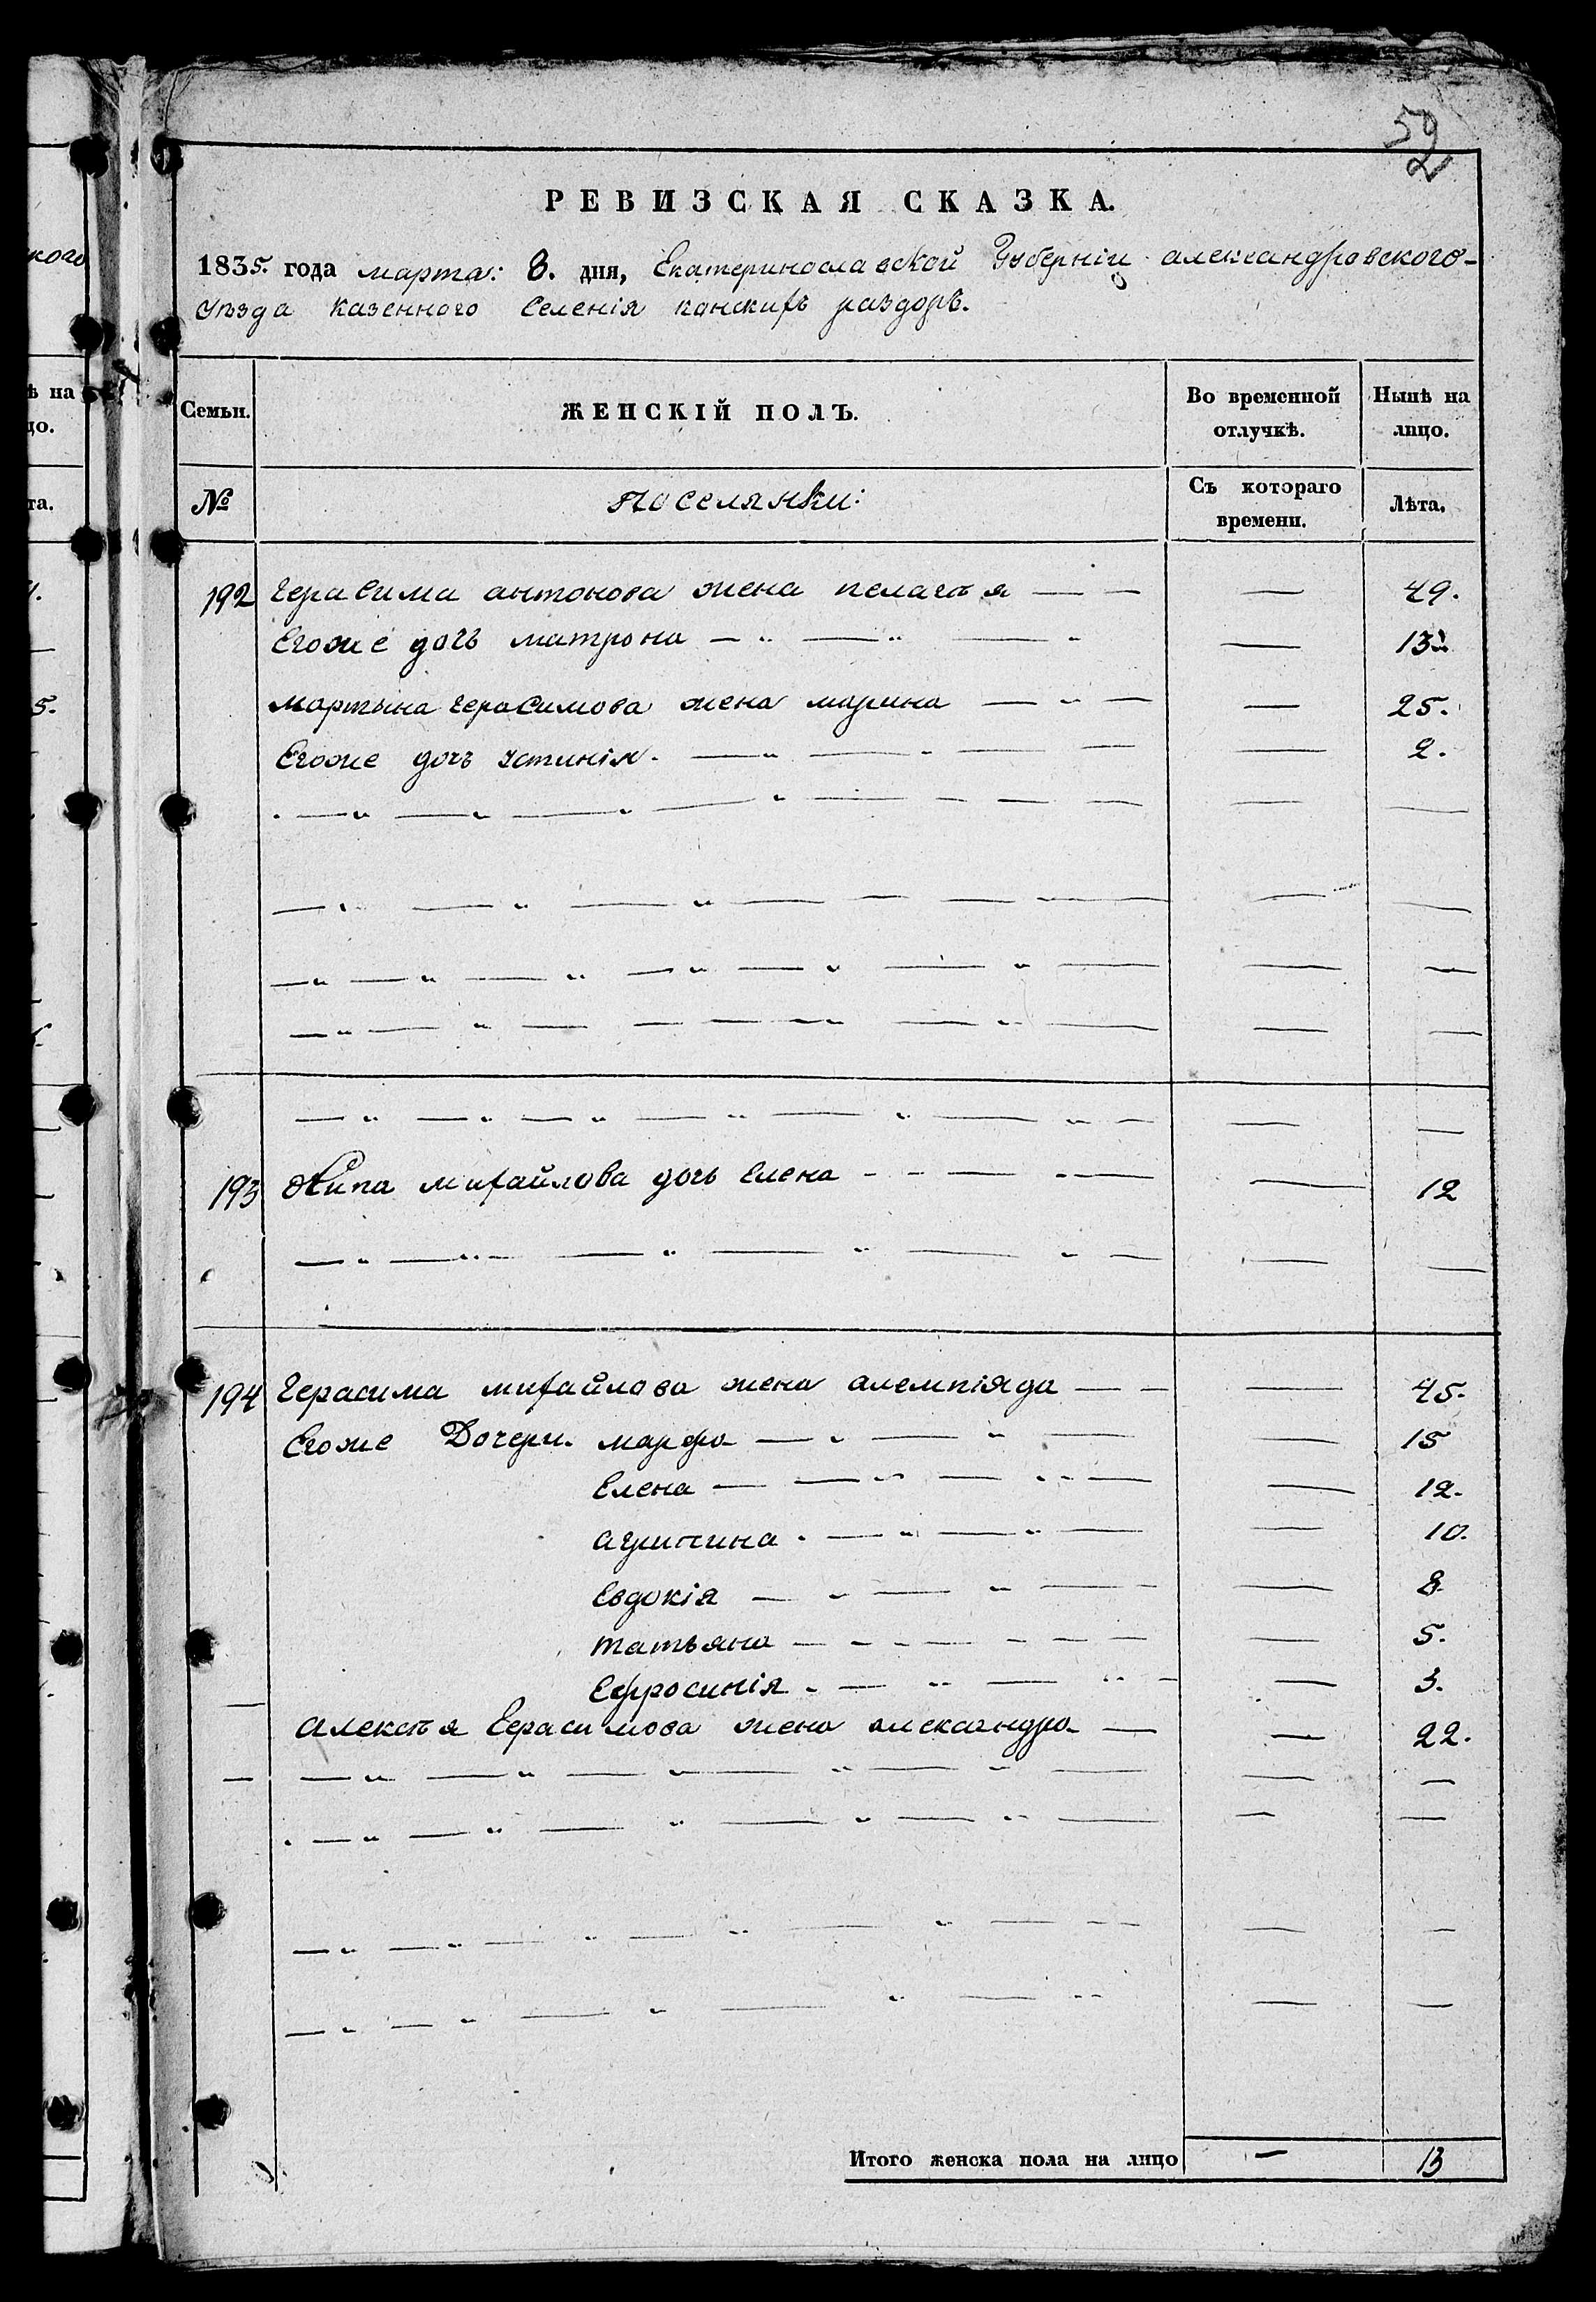 52
РЕВИЗСКАЯ СКАЗКА.
1835. года марта: 8. дня, Екатеринославской Губерніи александровского-
уѣзда казенного Селенія конскихъ раздоръ.
Семьи. ЖЕНСКІЙ ПОЛЪ. Во временной отлучкѣ. Нынѣ на лицо.
№ поселянки: Съ котораго времени. Лѣта.
192 Герасима антонова жена пелагѣя — 49.
Егоже дочь матрона — 13
мартина герасимова жена марина — 25.
Егоже дочь устинія. — 2.
193 Кипа михайлова дочь Елена — 12
194 Герасима михайлова жена алемпіяда — 45.
Егоже Дочери. марфа — 15
Елена — 12.
агрипина — 10.
Евдокія — 8.
татьяна — 5.
Ефросинія — 3.
алексѣя Герасимова жена александра — 22.
Итого женска пола на лицо — 13
кого
ѣ на
цо.
та.
5.